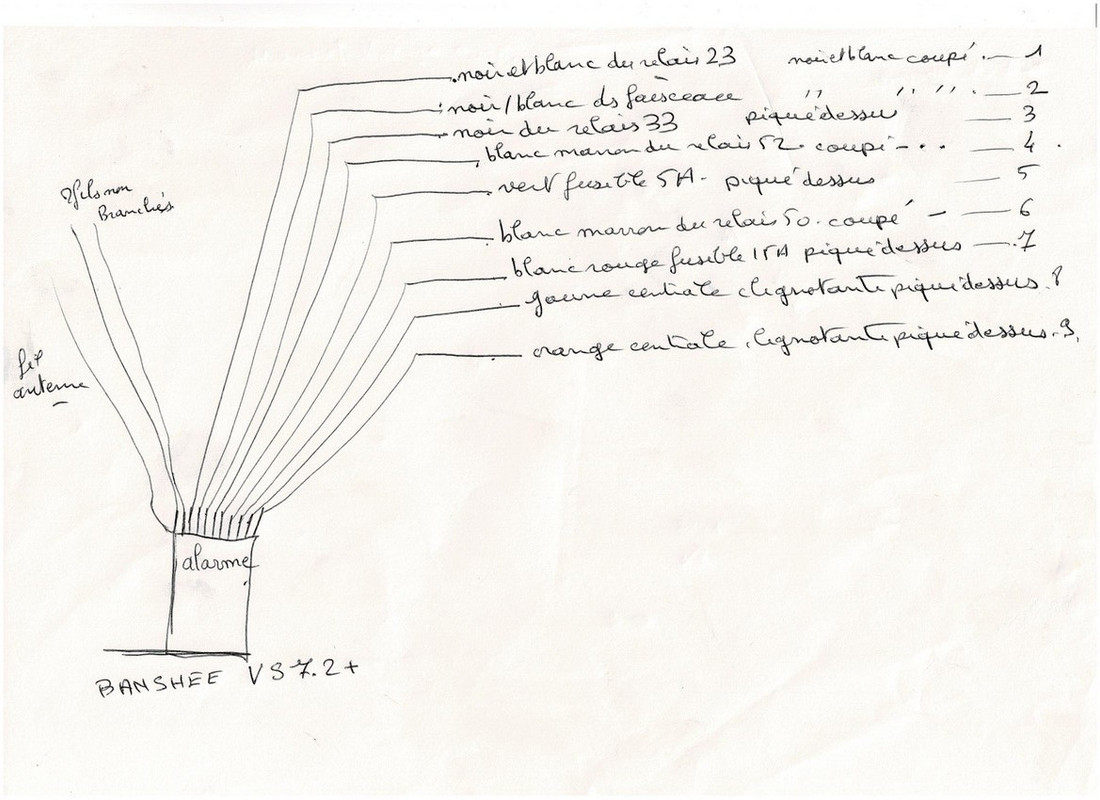 noir et blanc du relais 23 noir et blanc coupé. — 1
noir/blanc ds faisceau " " " " . — 2
noir du relais 33 piqué dessus — 3
blanc marron du relais 52. coupé - . . — 4 .
vert fusible 5A - piqué dessus — 5
blanc marron du relais 50. coupé - — 6
blanc rouge fusible 15A piqué dessus — 7
jaune centrale clignotante piqué dessus. 8
orange centrale clignotante piqué dessus. 9.
2 fils non
Branchés
fil
antenne
alarme
BANSHEE VS 7.2+